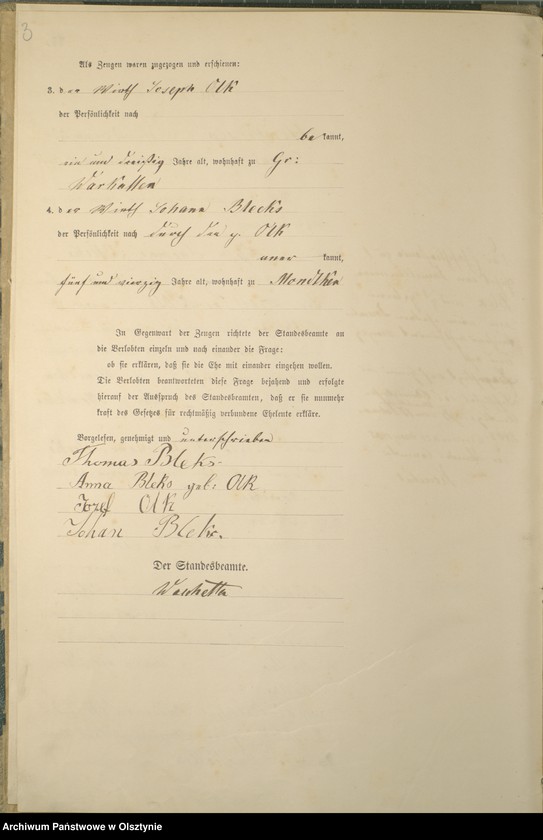 3
Als Zeugen waren zugezogen und erschienen:
3. der Wirth Joseph Olk
der Persönlichkeit nach
be kannt,
ein und dreißig Jahre alt, wohnhaft zu Gr:
Warkallen
4. der Wirth Johann Bleks
der Persönlichkeit nach durch den p. Olk
aner kannt,
fünf und vierzig Jahre alt, wohnhaft zu Mondtken
In Gegenwart der Zeugen richtete der Standesbeamte an
die Verlobten einzeln und nach einander die Frage:
ob sie erklären, daß sie die Ehe mit einander eingehen wollen.
Die Verlobten beantworteten diese Frage bejahend und erfolgte
hierauf der Ausspruch des Standesbeamten, daß er sie nunmehr
kraft des Gesetzes für rechtmäßig verbundene Eheleute erkläre.
Vorgelesen, genehmigt und unterschrieben
Thomas Bleks
Anna Bleks geb: Olk
Jozef Olk
Johan Bleks.
Der Standesbeamte.
Archiwum Państwowe w Olsztynie